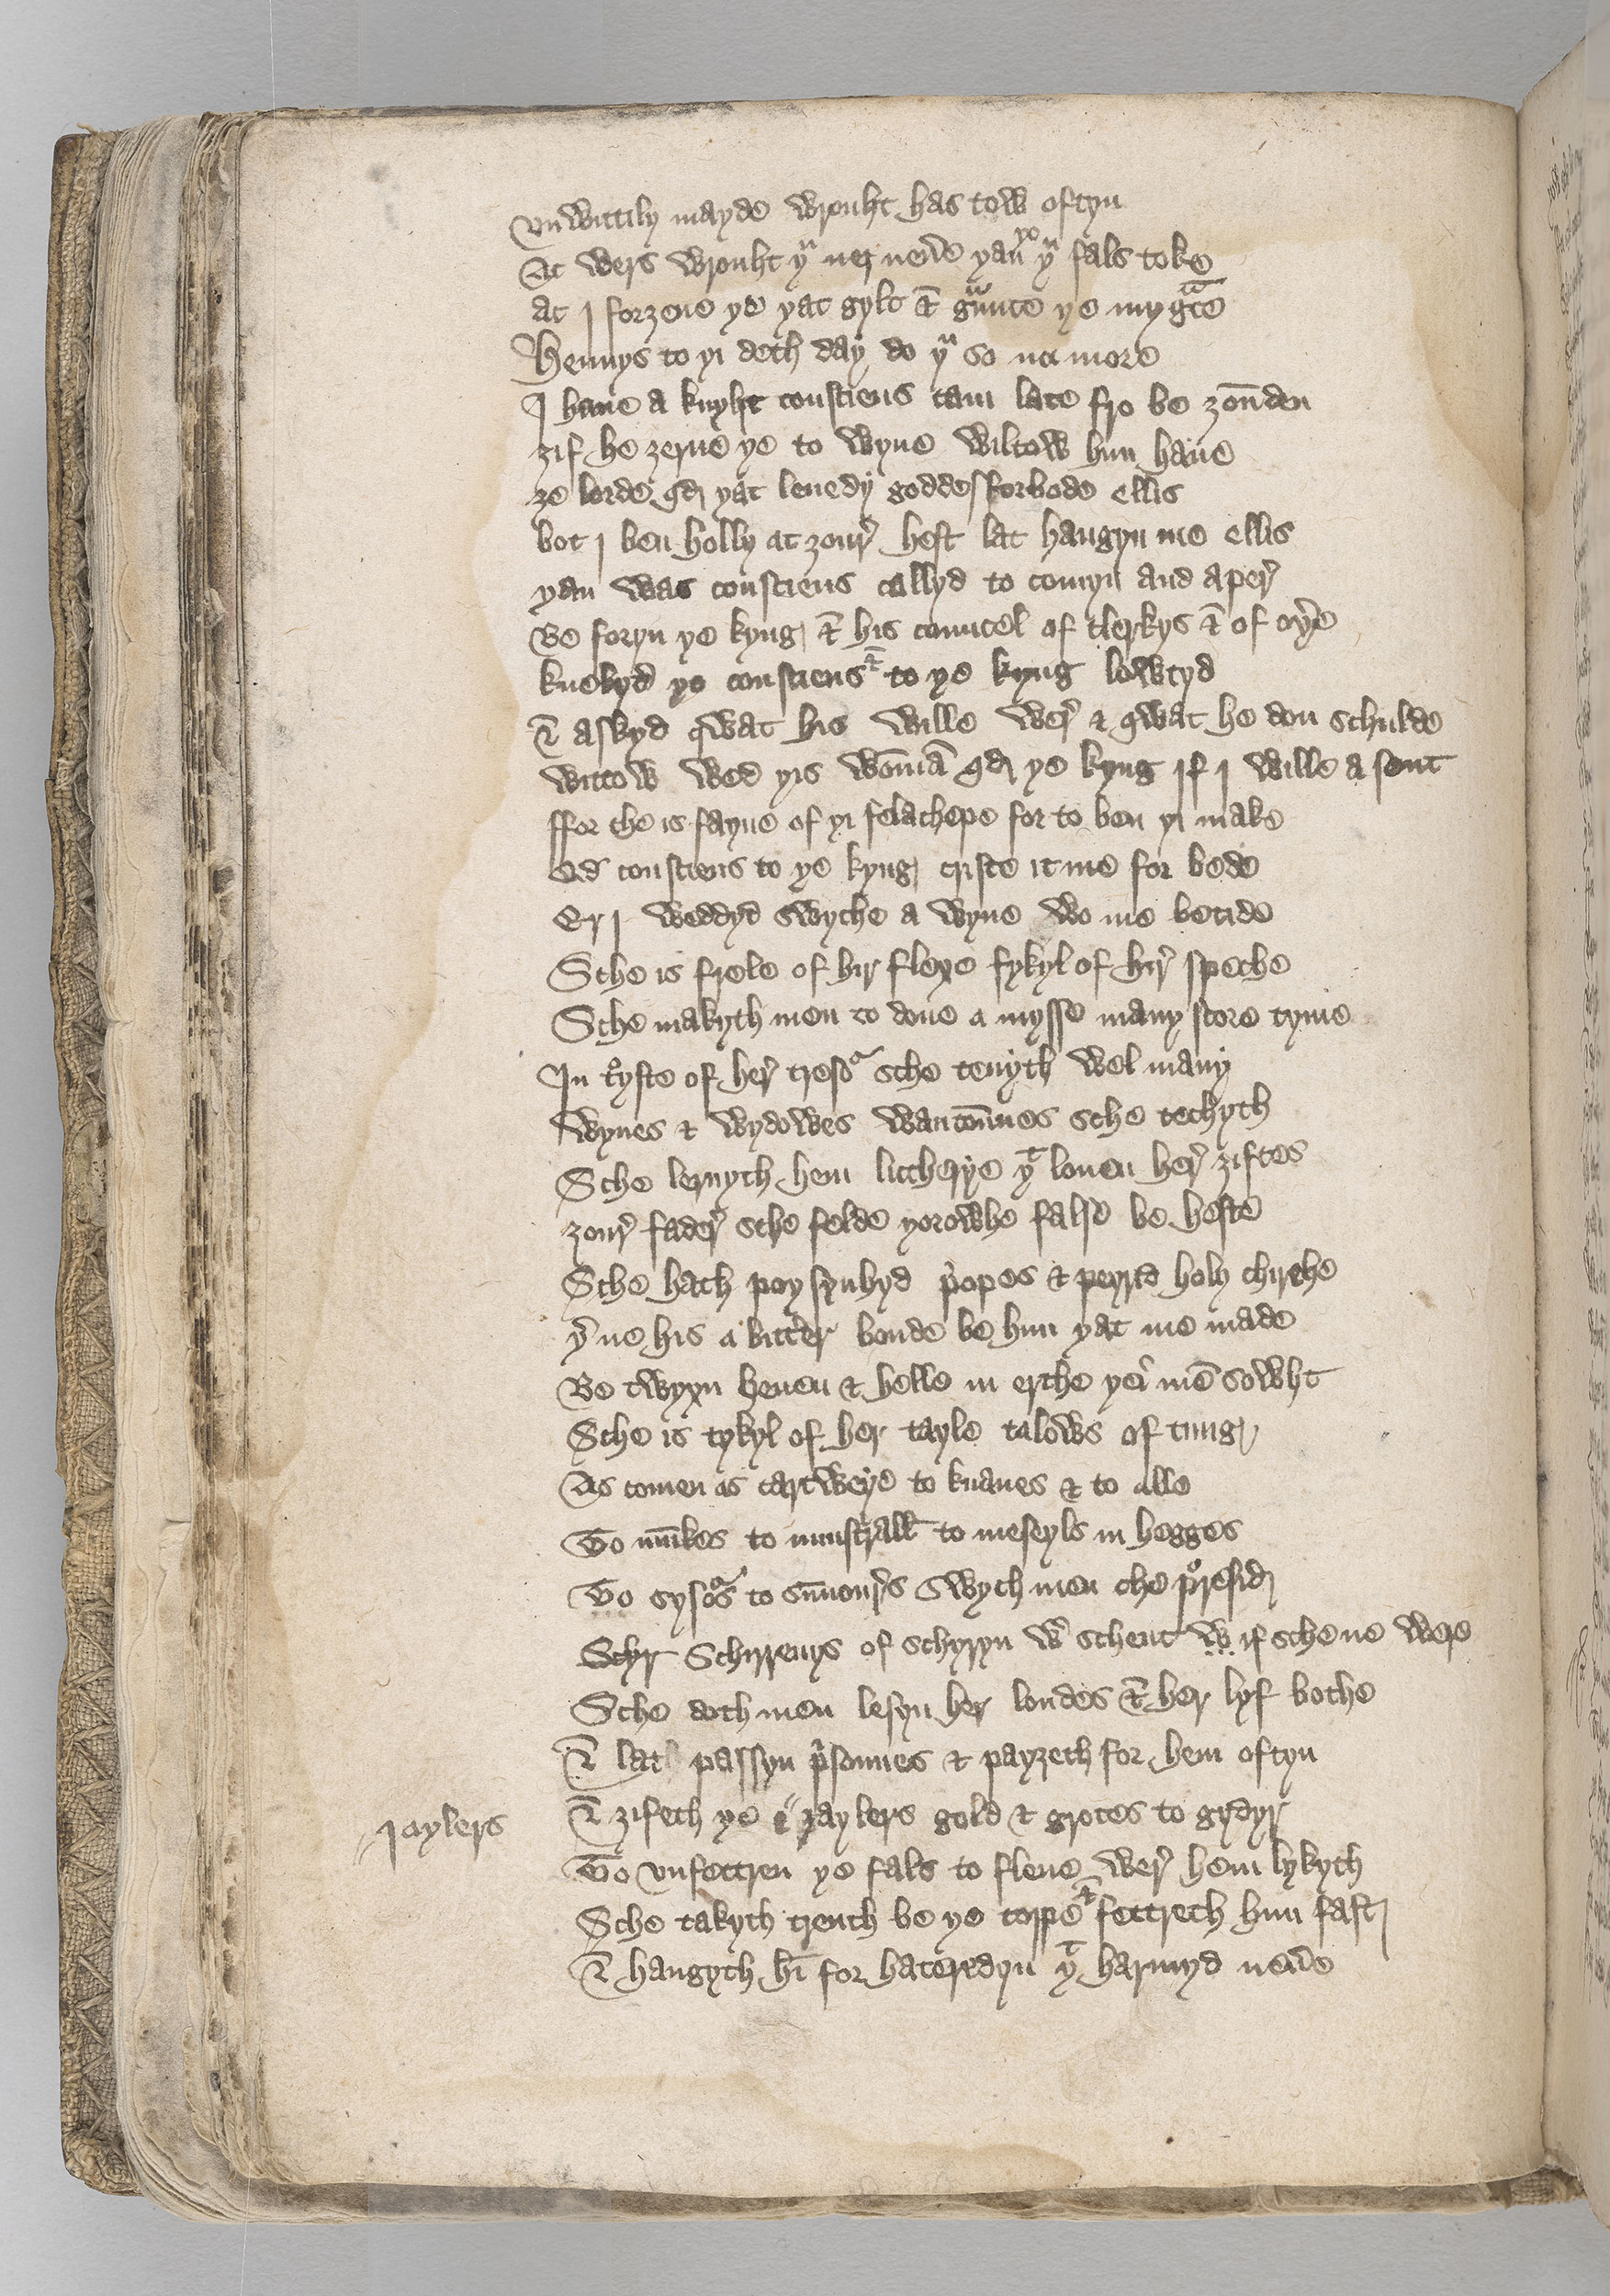 vnwittily mayde wrouht has tow oftyn
At wers wrouht yu ner neuer yan yo yu fals toke
at j forzeue ye yat gylt & graunte ye my grace
Hennys to yi deth day do yu so na more
I haue a knyht consciens cam late fro be zonden
zif he zerne ye to wyue wiltow him haue
ze lorde qd yat leuedy goddes forbode ellis
bot j ben holly at zour hest lat hangyn me ellis
yan was consciens callyd to comyn and aper
Be foryn ye kyng & his councel of clerkys & of oyer
knelyd yo consciens & to ye kyng lowtyd
& askyd qwat his wille wer & qwat he don schulde
wittow wed yis woman qd ye kyng if j wille a sent
ffor che is fayne of yi felachepe for to ben yi make
Qd consciens to ye kyng criste it me for bede
Er j weddyd swyche a wyue wo me betide
Sche is frele of hir fleye fykyl of hir speche
Sche makyth men to done a mysse many score tyme
In tryste of her tresor sche tenyth wel many
wyues & wydowes wantounnes sche techyth
Sche lernyth hem litcherye yt louen her ziftes
zour fader sche felde yorowhe false be heste
Sche hath poysynhyd popes & peyrid holy chirche
yer ne his a bitter bonde be him yat me made
Be twyxn heuen & helle in erthe yei men sowht
Sche is tykyl of her tayle talows of tung
As comen as cartweye to knaues & to alle
To munkes to minstrall to meseyls in hegges
To sysors to sumours swych men che presid
Schyr Schirreuys of schyryn wer schent w if sche ne were
Sche doth men lesyn her londes & her lyf bothe
& lat passyn prisonnes & payzeth for hem oftyn
& zifeth ye zaylers gold & grotes to gydyr
jaylers
To vnfettren ye fals to flene wer hem lykyth
Sche takyth treuth be ye toppe & fettreth him fast
& hangyth him for hateredyn yt harmyd neuer